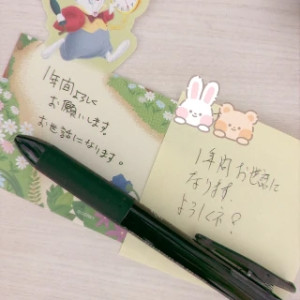 1年間よろしく
お願いします。
お世話になります。
1年間お世話に
なります.
よろしくネ?